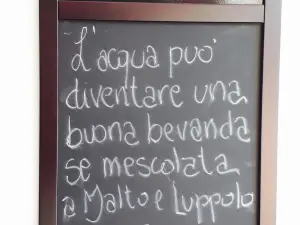 L'acqua puo'
diventare una
buona bevanda
se mescolata
a Malto e Luppolo